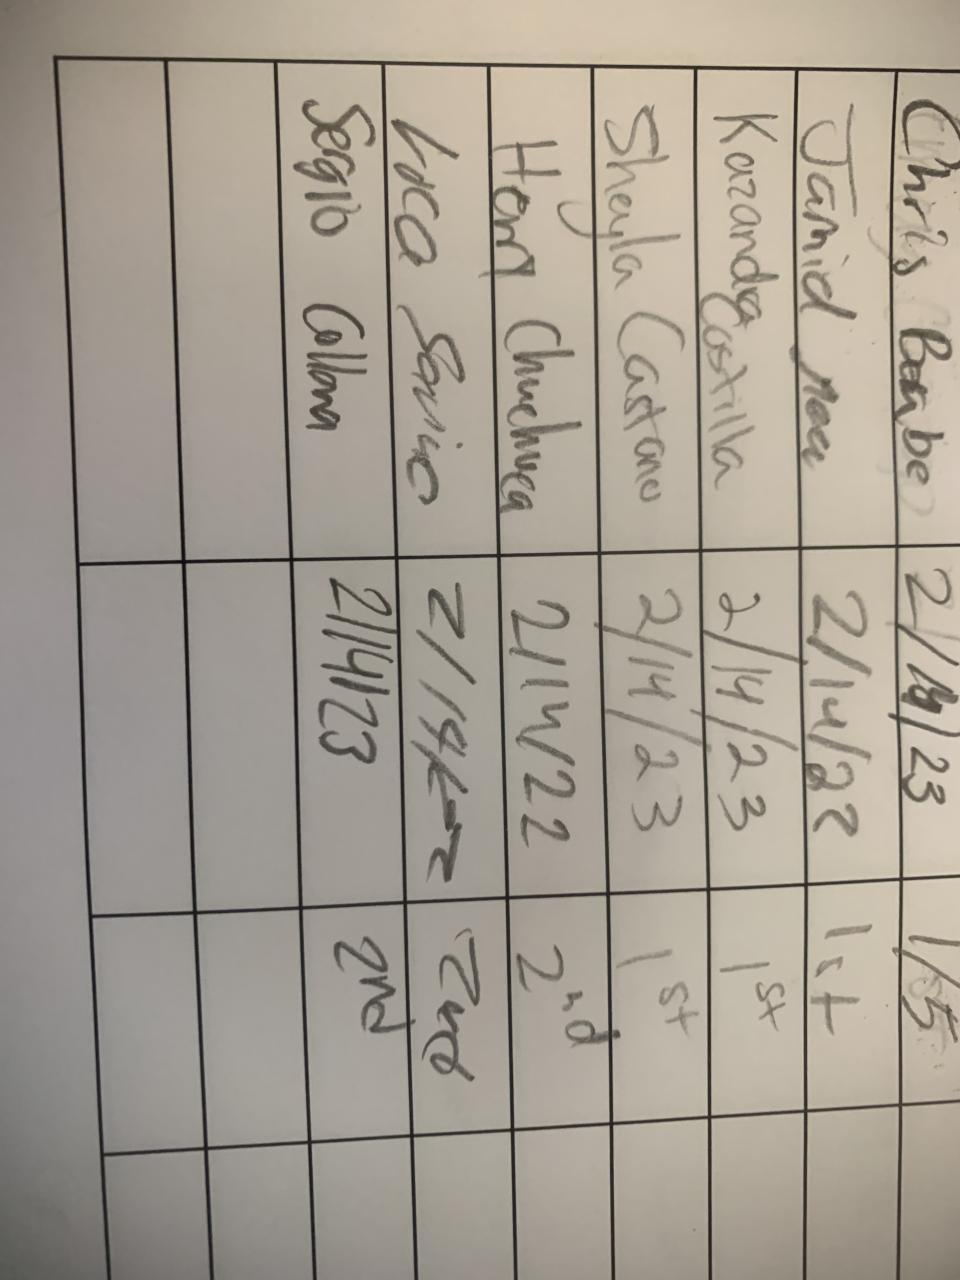 Chris Bembe 2/14/23 1/5
Jamid 2/14/22 1st
Kazandra Costilla 2/14/23 1st
Sheyla Castano 2/14/23 1st
Henry Chuchuca 2/14/22 2nd
Luca Savino 2/14/ 2nd
Segio Collona 2/14/23 2nd